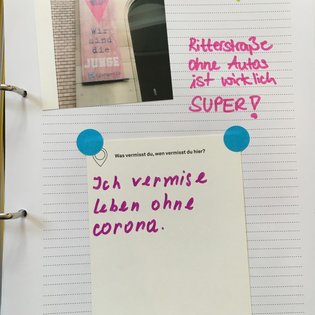 Wir
sind
die
JUNGE
Ritterstraße
ohne Autos
ist wirklich
SUPER!
Was vermisst du, wen vermisst du hier?
Ich vermise
leben ohne
corona.